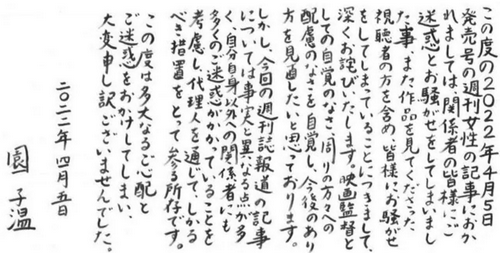 この度の２０２２年４月５日
発売号の週刊女性の記事におか
れましては、関係者の皆様にご
迷惑とお騒がせをしてしまいまし
た事、また作品を見てくださった
視聴者の方を含め、皆様にお騒がせ
をしてしまっていることにつきまして、
深くお詫びいたします。映画監督と
しての自覚のなさ、周りの方々への
配慮のなさを自覚し、今後のあり
方を見直したいと思っております。
しかし、今回の週刊誌報道の記事
については事実と異なる点が多
く、自分自身以外への関係者にも
多くのご迷惑がかかっていることを
考慮し、代理人を通じて、しかる
べき措置をとって参る所存です。
この度は多大なるご心配と
ご迷惑をおかけしてしまい、
大変申し訳ございませんでした。
二〇二二年 四月五日
園 子温